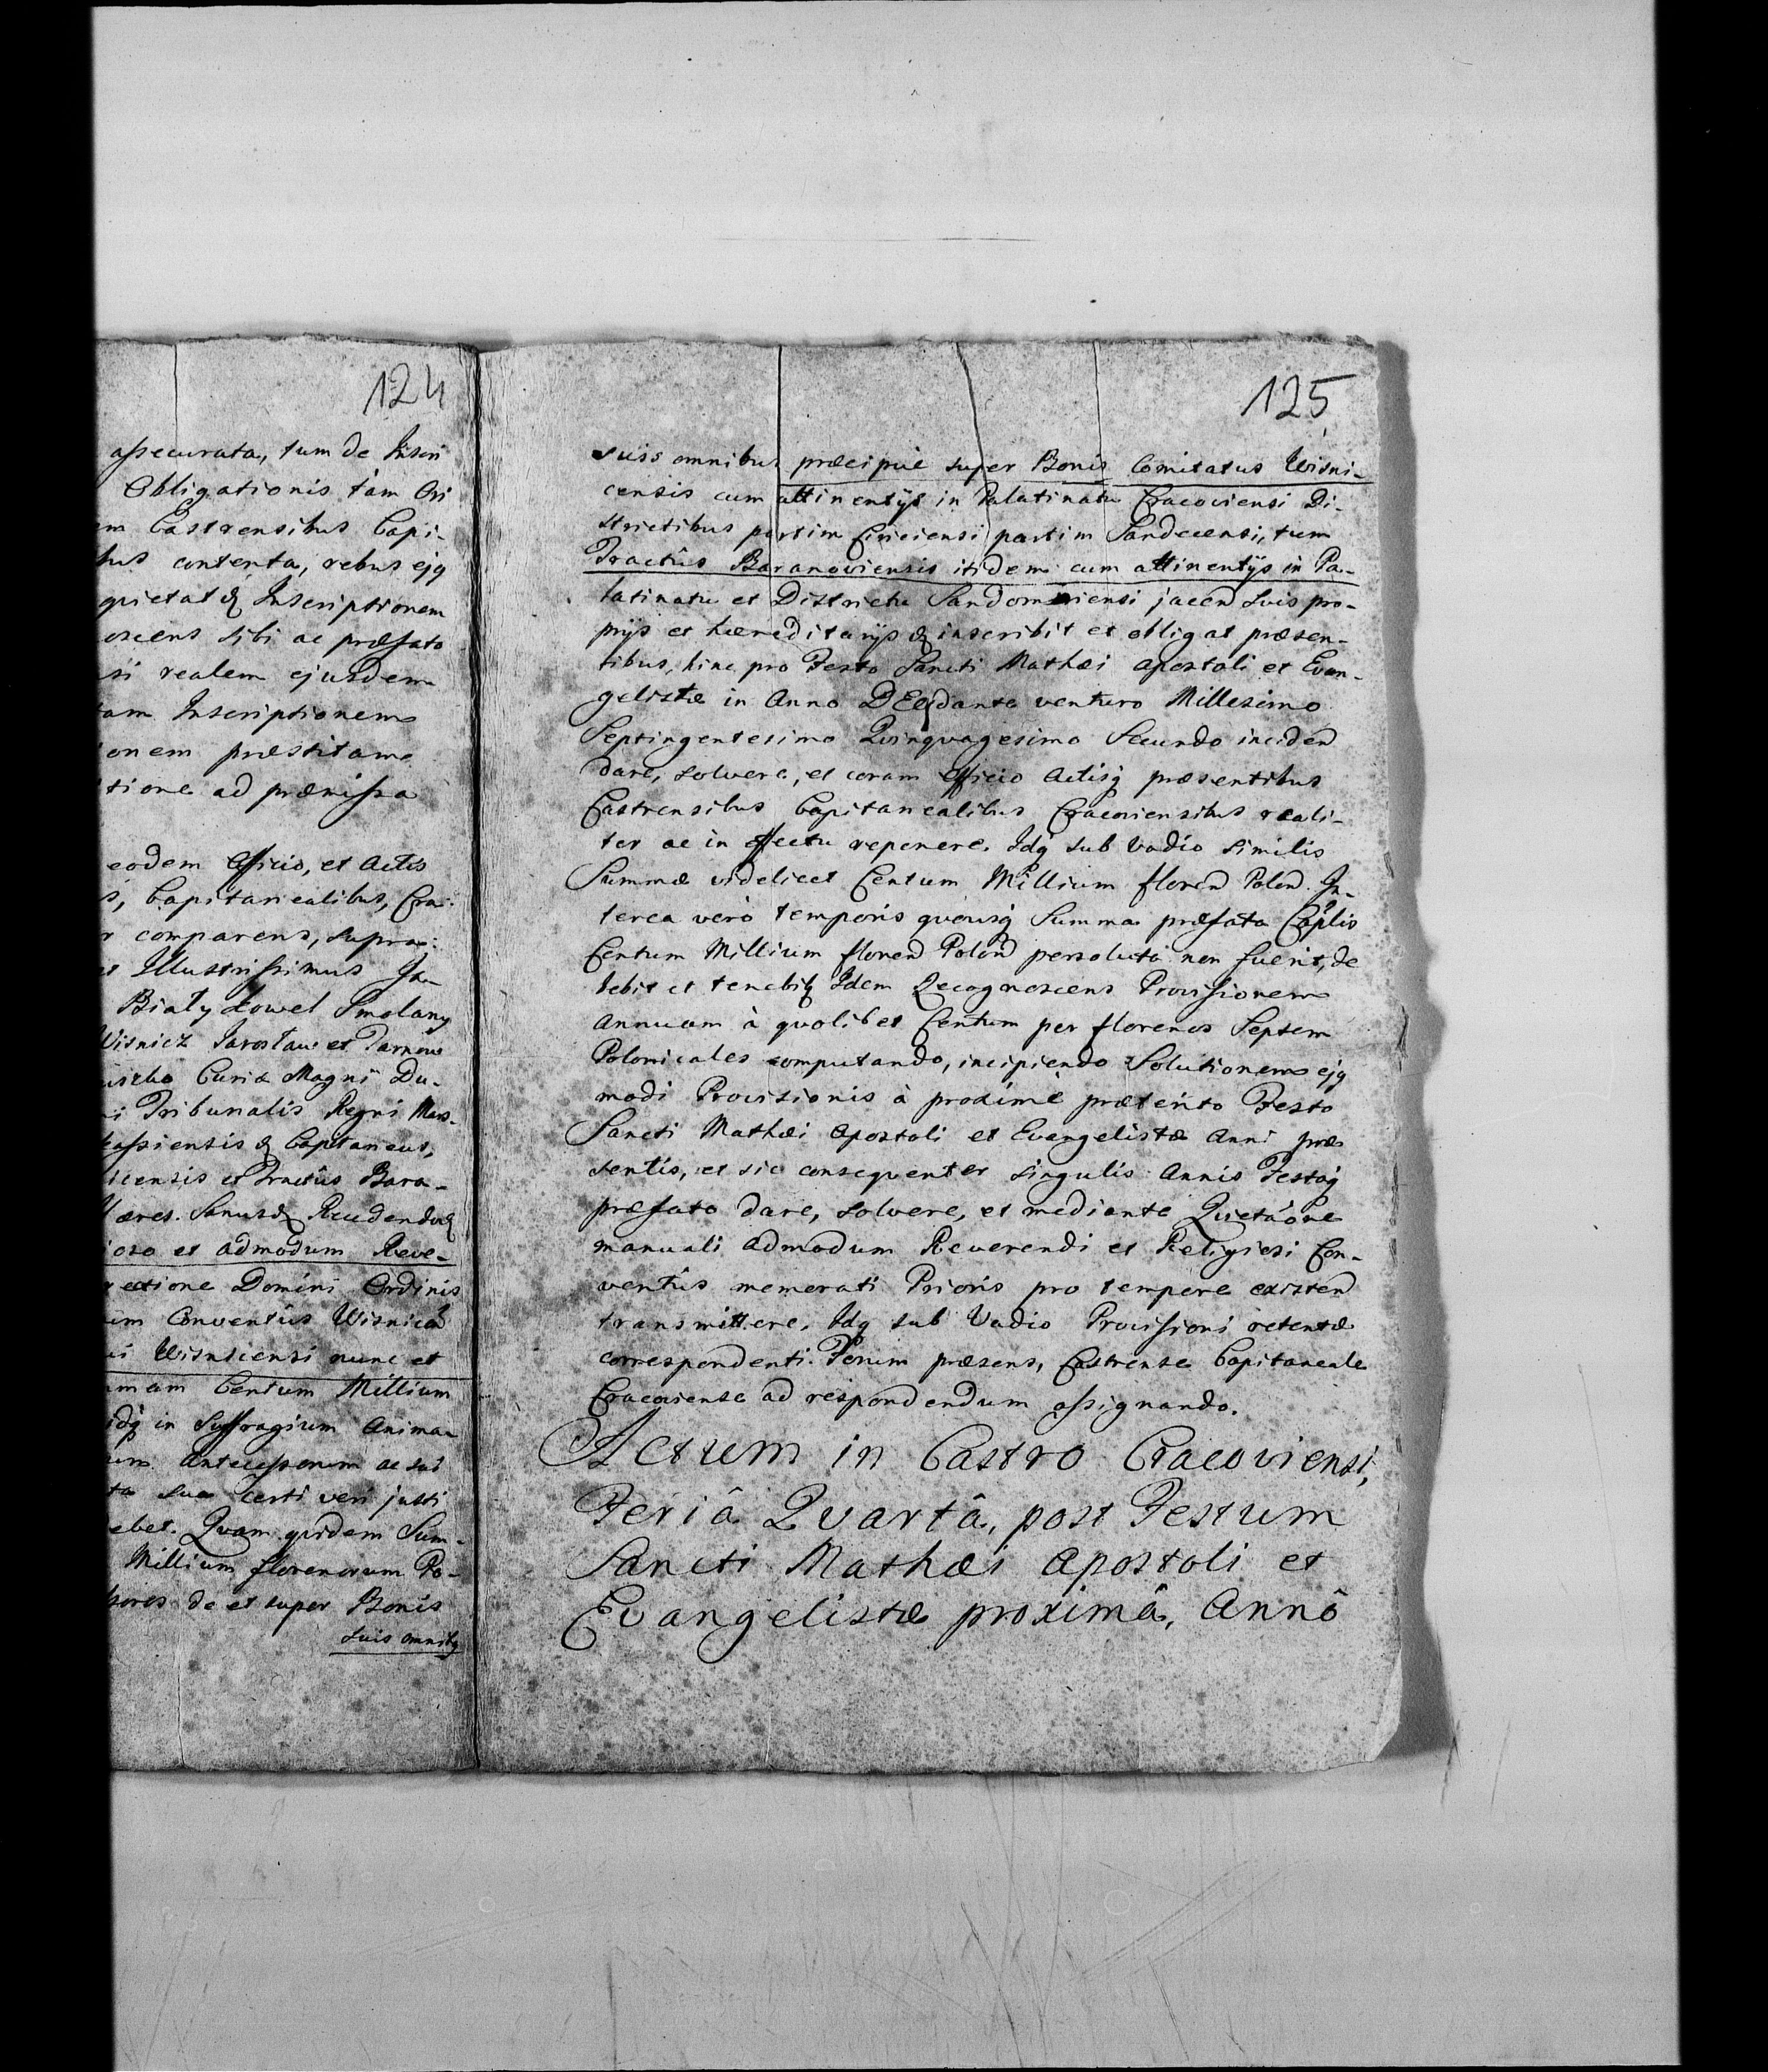 124
assecurata, tum de Inscri
Obligationis tàm Ori
m Castrensibus Capi-
bus contenta, rebus ejq
grietatq Inscriptionem
oscens sibi ac præfato
si realem ejusdem
tam Inscriptionem
onem præstitam
tione ad præmissa
eodem Officio, et Actis
s, Capitanealibus, Cra-
r comparens, supra-
Illustrissimus
Biały dowel Smolany
Wisnicz Jarosław et Tarnow
Curiæ Magni Du-
i Tribunalis Regni Mars-
kassiensis q Capitaneus,
icensis et Tractûs Bara-
Hæres. Sanusq
ioso et admodum Reve-
ectione Domini Ordinis
Conventûs Wisnicen
Wisniciensi nunc et
mmam Centum Millium
idq in Suffragium Animæ
um Antecessorum ac sui
ta sua certi veri justi
ebet. Quam quidem Sum-
Millium florenorum Po-
sores de et super Bonis
suis omnibq
125
suis omnibus præcipuè super Bonis Comitatus Wisni-
censis cum attinentijs in Palatinatu Cracoviensi Di-
strictibus partim Ciriciensi partim Sandecensi, tum
Tractûs Baranoviensis itidem cum attinentijs in Pa-
latinatu et Districtu Sandomiriensi jacen suis pro-
prijs et hæreditarijs q inscribit et obligat præsen-
tibus, hinc pro Festo Sancti Mathæi Apostoli et Evan-
gelistæ in Anno DEo dante venturo Millesimo
Septingentesimo Quinquagesimo Secundo inciden
dare, solvere, et coram Officio Actisq præsentibus
Castrensibus Capitanealibus Cracoviensibus reali-
ter ac in effectu reponere. Idq sub Vadio similis
Summæ videlicet Centum Millium floren Polon. In-
terea verò temporis quousq Summa præfata Caplis
Centum Millium floren Polon persoluta non fuerit, de
bebit et tenebitq Idem Recognoscens Provisionem
Annuam à quolibet Centum per florenos Septem
Polonicales computando, incipiendo Solutionem ejq
modi Provisionis à proximè præterito Festo
Sancti Mathæi Apostoli et Evangelistæ Anni præ
sentis, et sic consequenter singulis Annis Festoq
præfato dare, solvere, et mediante Quietaõne
manuali Admodum Reverendi et Religiosi Con-
ventûs memorati Prioris pro tempore existen
transmittere. Idq sub Vadio Provisioni retentæ
correspondenti. Forum præsens, Castrense Capitaneale
Cracoviense ad respondendum assignando.
Actum in Castro Cracoviensi,
Feriâ Quartâ, post Festum
Sancti Mathæi Apostoli et
Evangelistæ proximâ, Annô